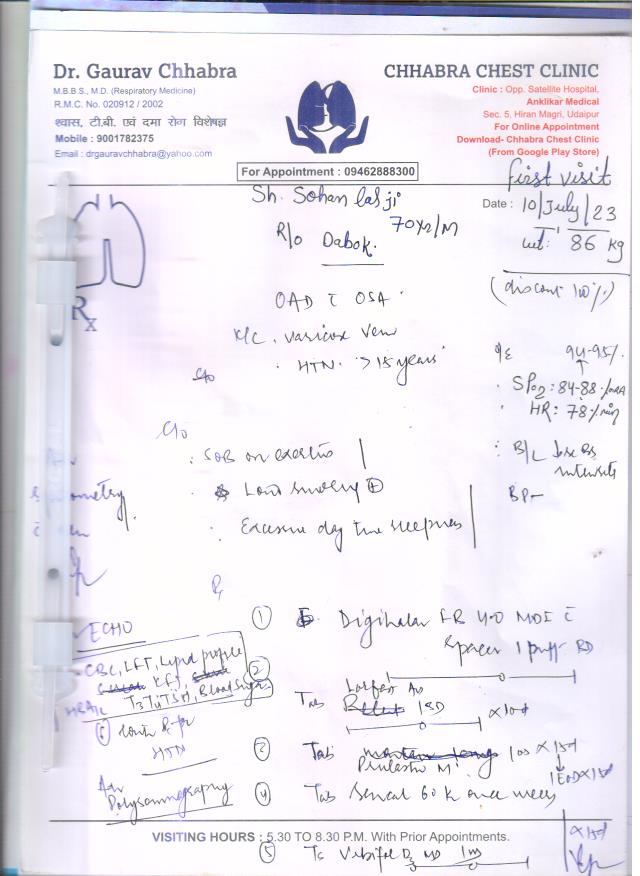 Dr. Gaurav Chhabra
M.B.B.S., M.D. (Respiratory Medicine)
R.M.C. No. 020912 / 2002
श्वास, टी.बी. एवं दमा रोग विशेषज्ञ
Mobile : 9001782375
Email : drgauravchhabra@yahoo.com
CHHABRA CHEST CLINIC
Clinic : Opp. Satellite Hospital,
Anklikar Medical
Sec. 5, Hiran Magri, Udaipur
For Online Appointment
Download- Chhabra Chest Clinic
(From Google Play Store)
For Appointment : 09462888300
first visit
Date : 10/July/23
wt: 86 kg
Sh. Sohan lal ji
70 /M
R/o Dabok.
(discount 100%)
Rx
OAD c OSA
K/C. varicose vein
HTN. >15 years
c/o
O/E 94-95%
SPO2: 84-88%
HR: 78/min
B/L
intensity
BP-
C/o
SOB on exertion
Loud snoring +
Excessive day time sleepiness
Rx
ECHO
CBC, LFT, Lipid profile
KFT,
T3T4TSH, Blood Sugar
HRA1C
1 Digihaler FB 400 MDI c
spacer 1 puff BD
2 Tab 1BD x10d
6 Rx for
HTN
3 Tab 1OD x15d
M
Adv
Polysomnography
4 Tab 60 K once weekly
VISITING HOURS : 5.30 TO 8.30 P.M. With Prior Appointments.
5 D3
x15d